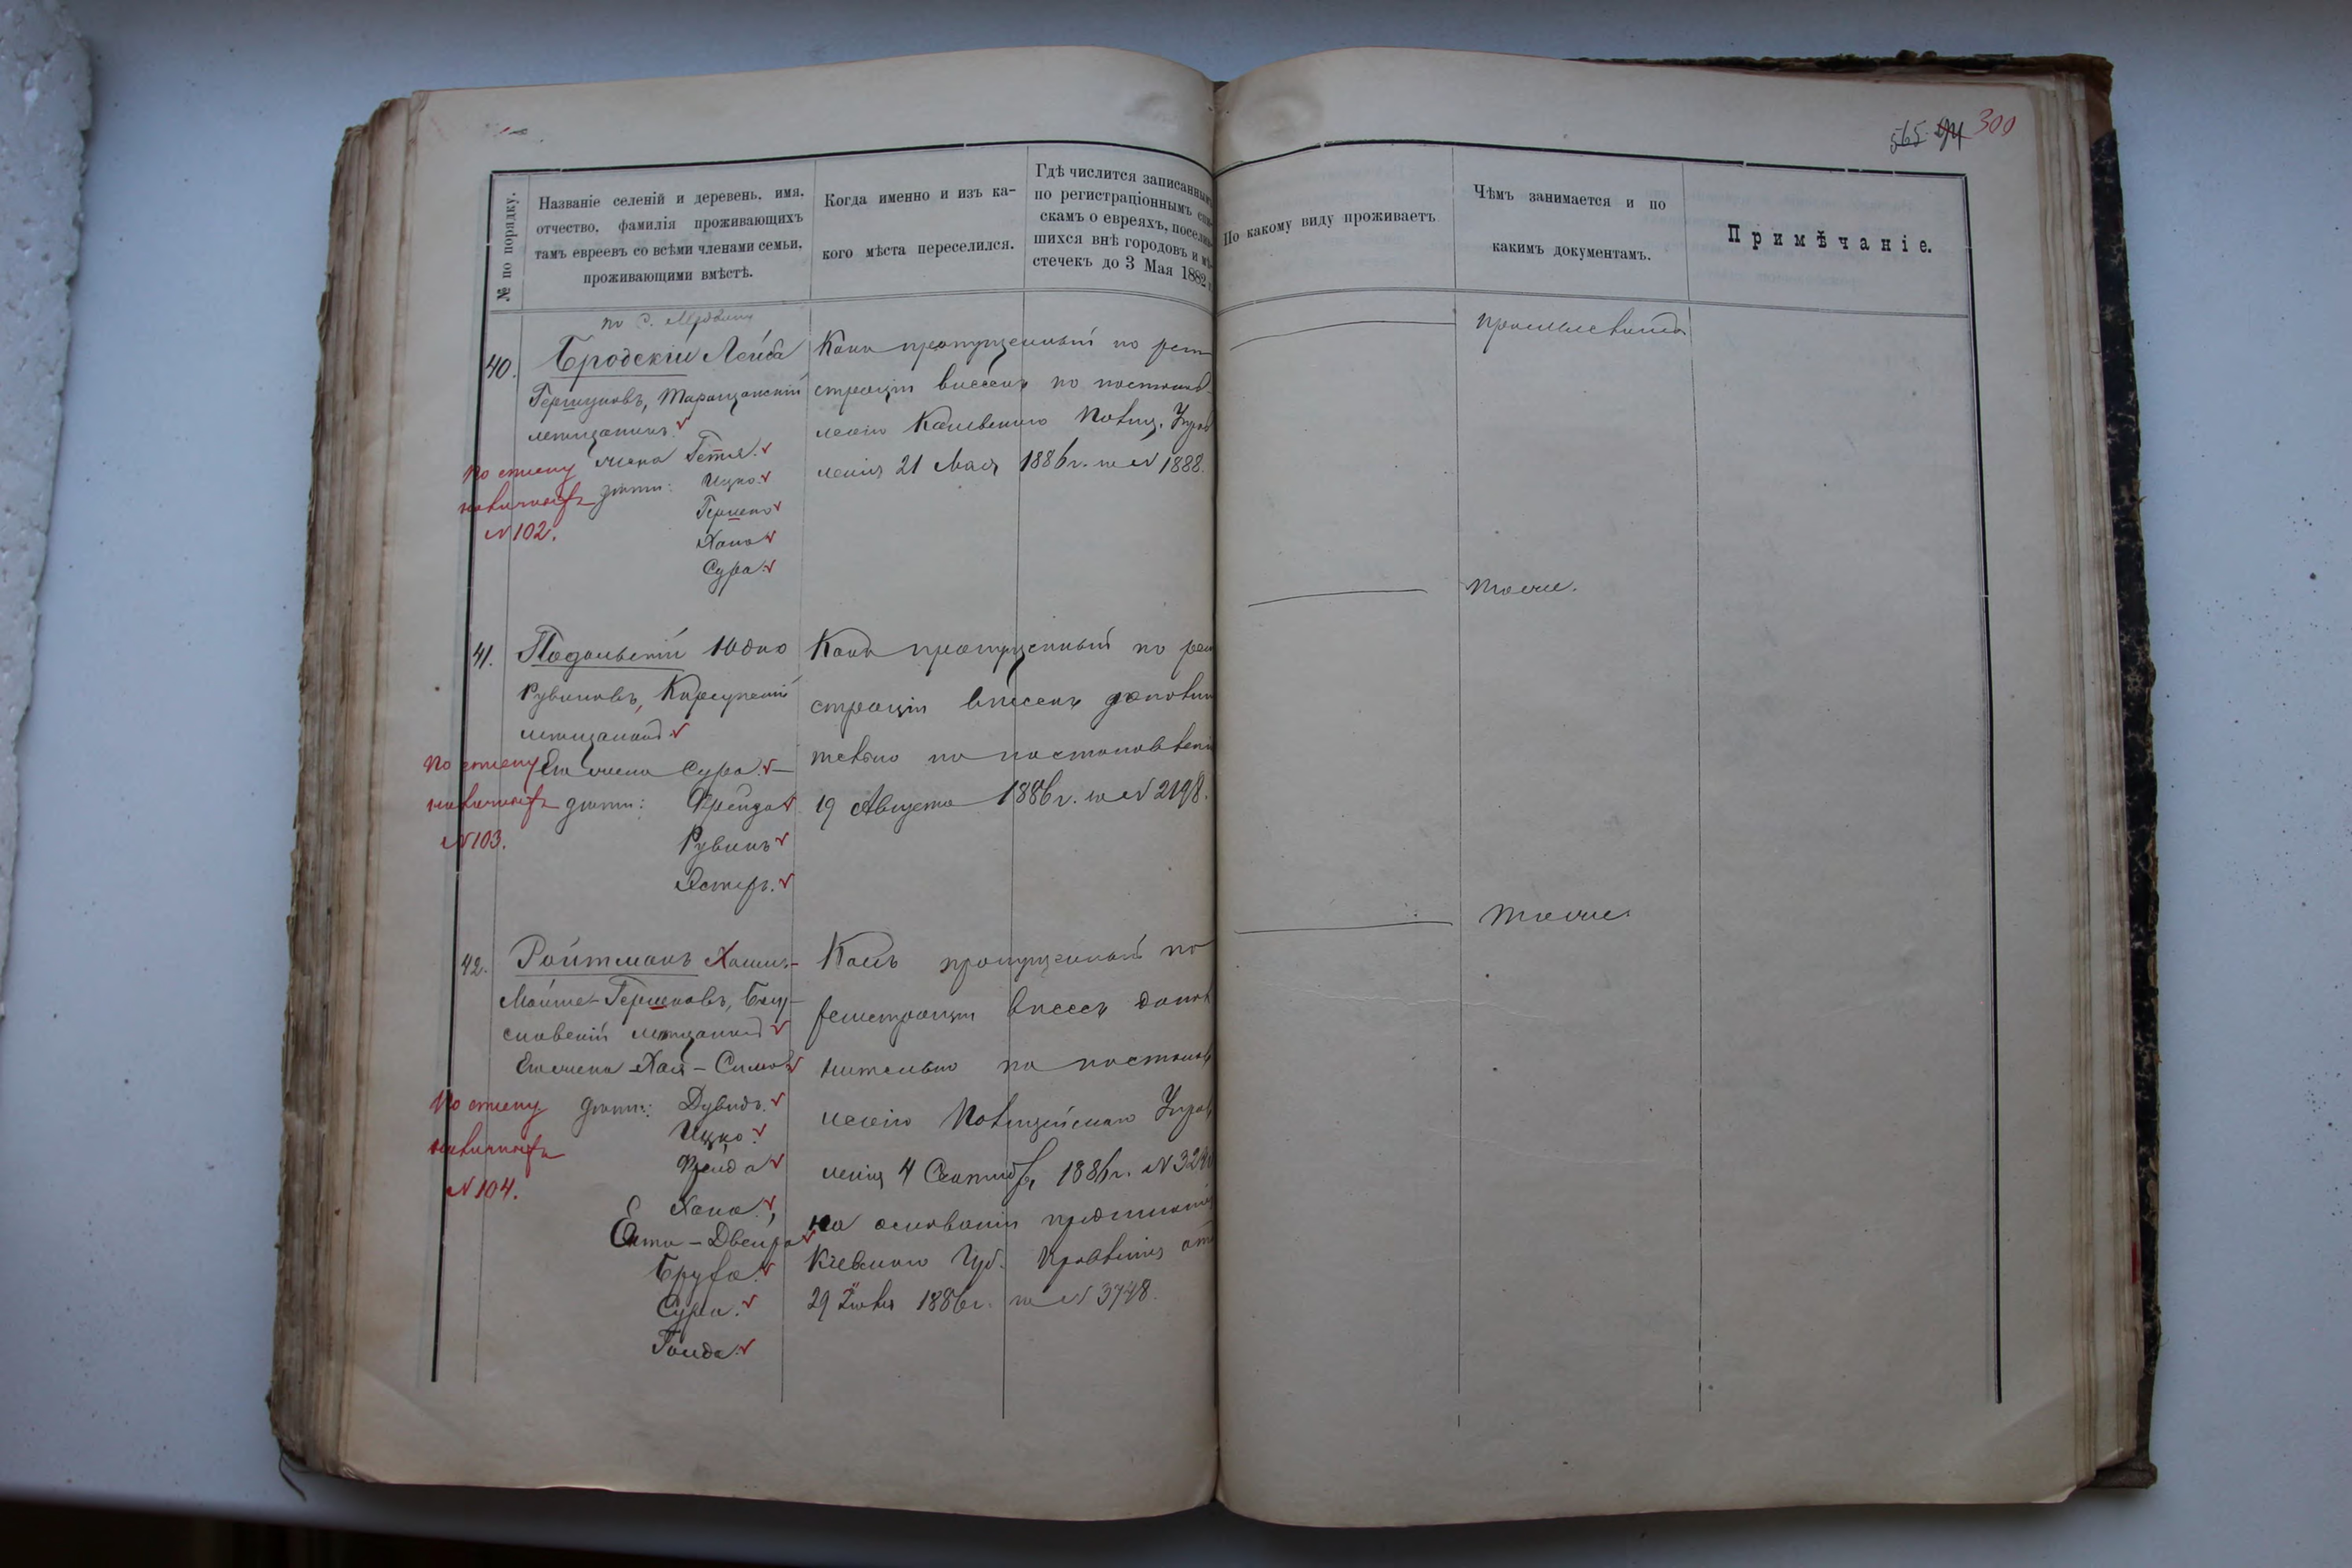 565 94 300
№ по порядку.
Названіе селеній и деревень, имя,
отчество, фамилія проживающихъ
тамъ евреевъ со всѣми членами семьи,
проживающими вмѣстѣ.
Когда именно и изъ ка-
кого мѣста переселился.
Гдѣ числится записаннымъ
по регистраціоннымъ спи-
скамъ о евреяхъ, поселив-
шихся внѣ городовъ и мѣ-
стечекъ до 3 Мая 1882 г.
По какому виду проживаетъ
Чѣмъ занимается и по
какимъ документамъ.
Примѣчаніе.
по С.
40.
Бродскій Лейба
Гершковъ, Таращанскій
мѣщанинъ.
жена Гетя.
дѣти: Ицко.
Гершко
Хана
Сура.
По списку
наличност
№ 102.
Какъ пропущенный по реги
страціи внесенъ по постанов
ленію Каневскаго Полиц. Управ
ленія 21 Мая 1886 г. за № 1888.
41.
Подольскій Юдко
Рувиновъ, Корсунскій
мѣщанинъ
Его жена Сура. —
дѣти: Фрейда
Рувинъ
Эстеръ.
По списку
наличност
№ 103.
Какъ пропущенный по реги
страціи внесенъ дополни
тельно по постановленію
19 Августа 1886 г. за № 2198.
тоже.
42.
Ройтманъ Хаимъ-
Мойше-Гершковъ, Богу-
славскій мѣщанинъ
Его жена Хая-Сима
дѣти: Дувидъ.
Ицко.
Фрейда
Хана.,
Ента-Двейра
Бруха.
Сура.
Голда.
По списку
наличност
№ 104.
Какъ пропущенный по
регистраціи внесенъ допол
нительно по постанов
ленію Полицейскаго Управ
ленія 4 Сентяб, 1886 г. №
на основаніи предписанія
Кіевскаго Губ. Правленія отъ
29 Іюля 1886 г. за № 3748.
тоже.